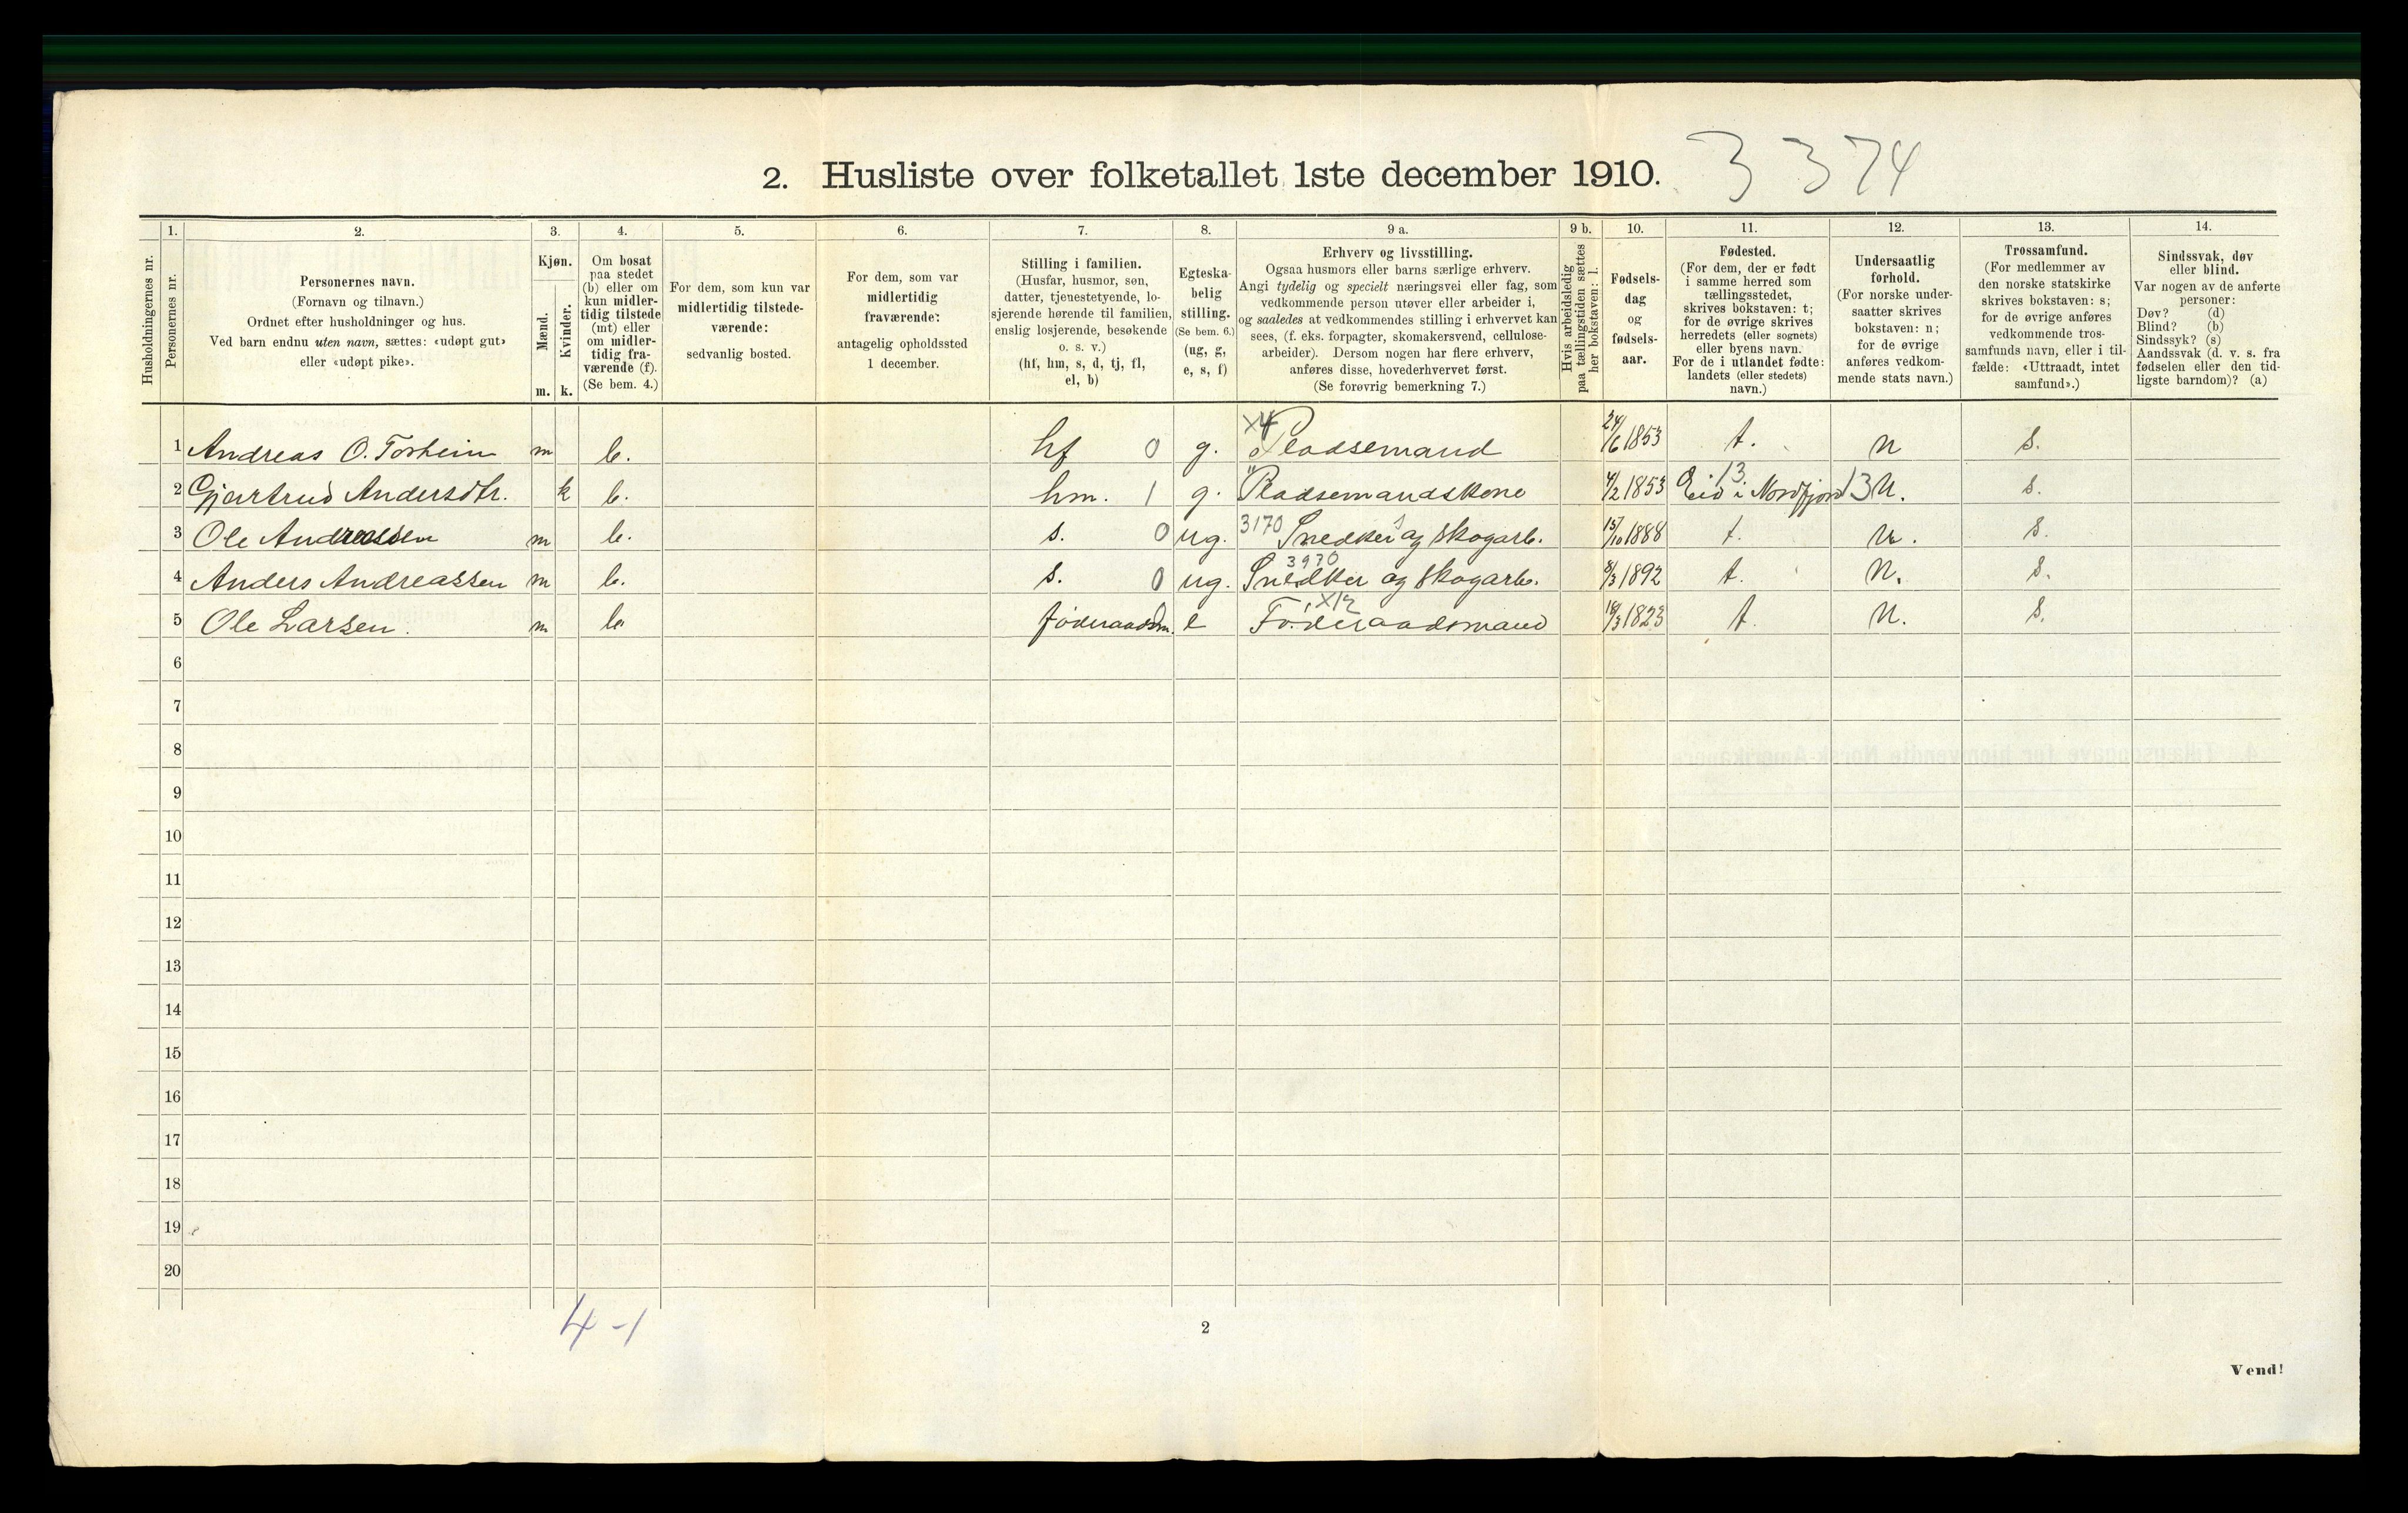 2. Husliste over folketallet 1ste december 1910. 3 374
Husholdningernes nr.
1.
Personernes nr.
2.
Personernes navn.
(Fornavn og tilnavn.)
Ordnet efter husholdninger og hus.
Ved barn endnu uten navn, sættes: «udøpt gut»
eller «udøpt pike».
3.
Kjøn.
Mænd.
Kvinder.
m. k.
4.
Om bosat
paa stedet
(b) eller om
kun midler-
tidig tilstede
(mt) eller
om midler-
tidig fra-
værende (f).
(Se bem. 4.)
5.
For dem, som kun var
midlertidig tilstede-
værende:
sedvanlig bosted.
6.
For dem, som var
midlertidig
fraværende:
antagelig opholdssted
1 december.
7.
Stilling i familien.
(Husfar, husmor, søn,
datter, tjenestetyende, lo-
sjerende hørende til familien,
enslig losjerende, besøkende
o. s. v.)
(hf, hm, s, d, tj, fl,
el, b)
8.
Egteska-
belig
stilling.
(Se bem. 6.)
(ug, g,
e, s, f)
9 a.
Erhverv og livsstilling.
Ogsaa husmors eller barns særlige erhverv.
Angi tydelig og specielt næringsvei eller fag, som
vedkommende person utøver eller arbeider i,
og saaledes at vedkommendes stilling i erhvervet kan
sees, (f. eks. forpagter, skomakersvend, cellulose-
arbeider). Dersom nogen har flere erhverv,
anføres disse, hovederhvervet først.
(Se forøvrig bemerkning 7.)
9 b.
Hvis arbeidsledig
paa tællingstiden sættes
her bokstaven: l.
10.
Fødsels-
dag
og
fødsels-
aar.
11.
Fødested.
(For dem, der er født
i samme herred som
tællingsstedet,
skrives bokstaven: t;
for de øvrige skrives
herredets (eller sognets)
eller byens navn.
For de i utlandet fødte:
landets (eller stedets)
navn.)
12.
Undersaatlig
forhold.
(For norske under-
saatter skrives
bokstaven: n;
for de øvrige
anføres vedkom-
mende stats navn.)
13.
Trossamfund.
(For medlemmer av
den norske statskirke
skrives bokstaven: s;
for de øvrige anføres
vedkommende tros-
samfunds navn, eller i til-
fælde: «Uttraadt, intet
samfund».)
14.
Sindssvak, døv
eller blind.
Var nogen av de anførte
personer:
Døv? (d)
Blind? (b)
Sindssyk? (s)
Aandssvak (d. v. s. fra
fødselen eller den tid-
ligste barndom)? (a)
1 Andreas O. Torheim m b. hf 0 g. X4 Pladsemand 24/6 1853 t. n s.
2 Gjertrud Andersdtr. k b. hm. 1 g. " Pladsemandskone 4/2 1853 Eid i Nordfjord 13 13 n. s.
3 Ole Andreassen m b. s. 0 ug. 3170 Snedker og skogarb. 15/10 1888 t. n. s.
4 Anders Andreassen m b. s. 0 ug. 3970 Snedker og skogarb. 8/3 1892 t. n. s.
5 Ole Larsen. m b. føderaadsm. e X12 Føderaadsmand 18/3 1823 t. n. s.
6
7
8
9
10
11
12
13
14
15
16
17
18
19
20
4-1
2
Vend!